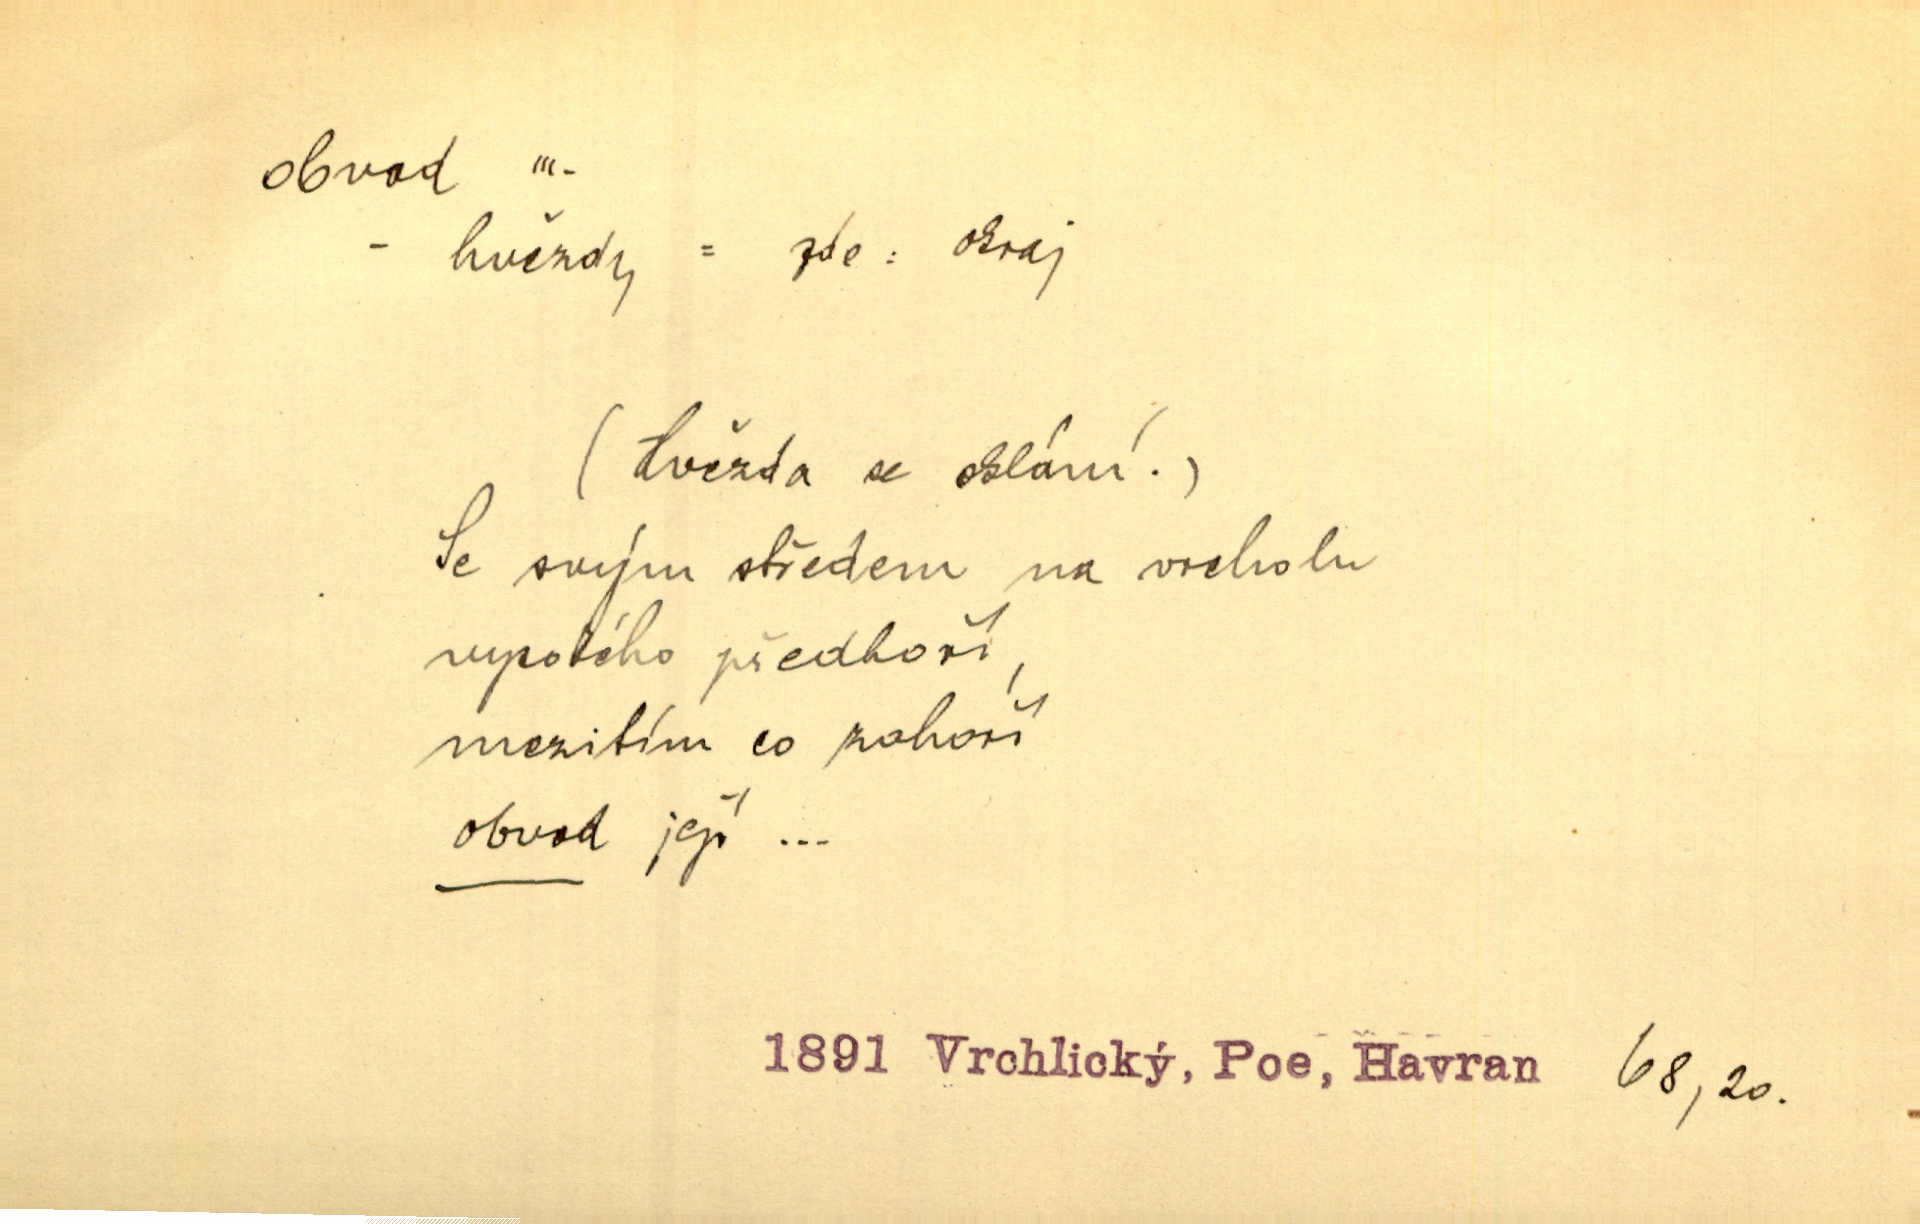 obvod m.
- hvězdy = zde: okraj
(Hvězda se sklání.)
Se svým středem na vrcholu
vypětého předhoří,
mezitím co zahoří
obvod její ...
1891 Vrchlický, Poe, Havran 68,20.